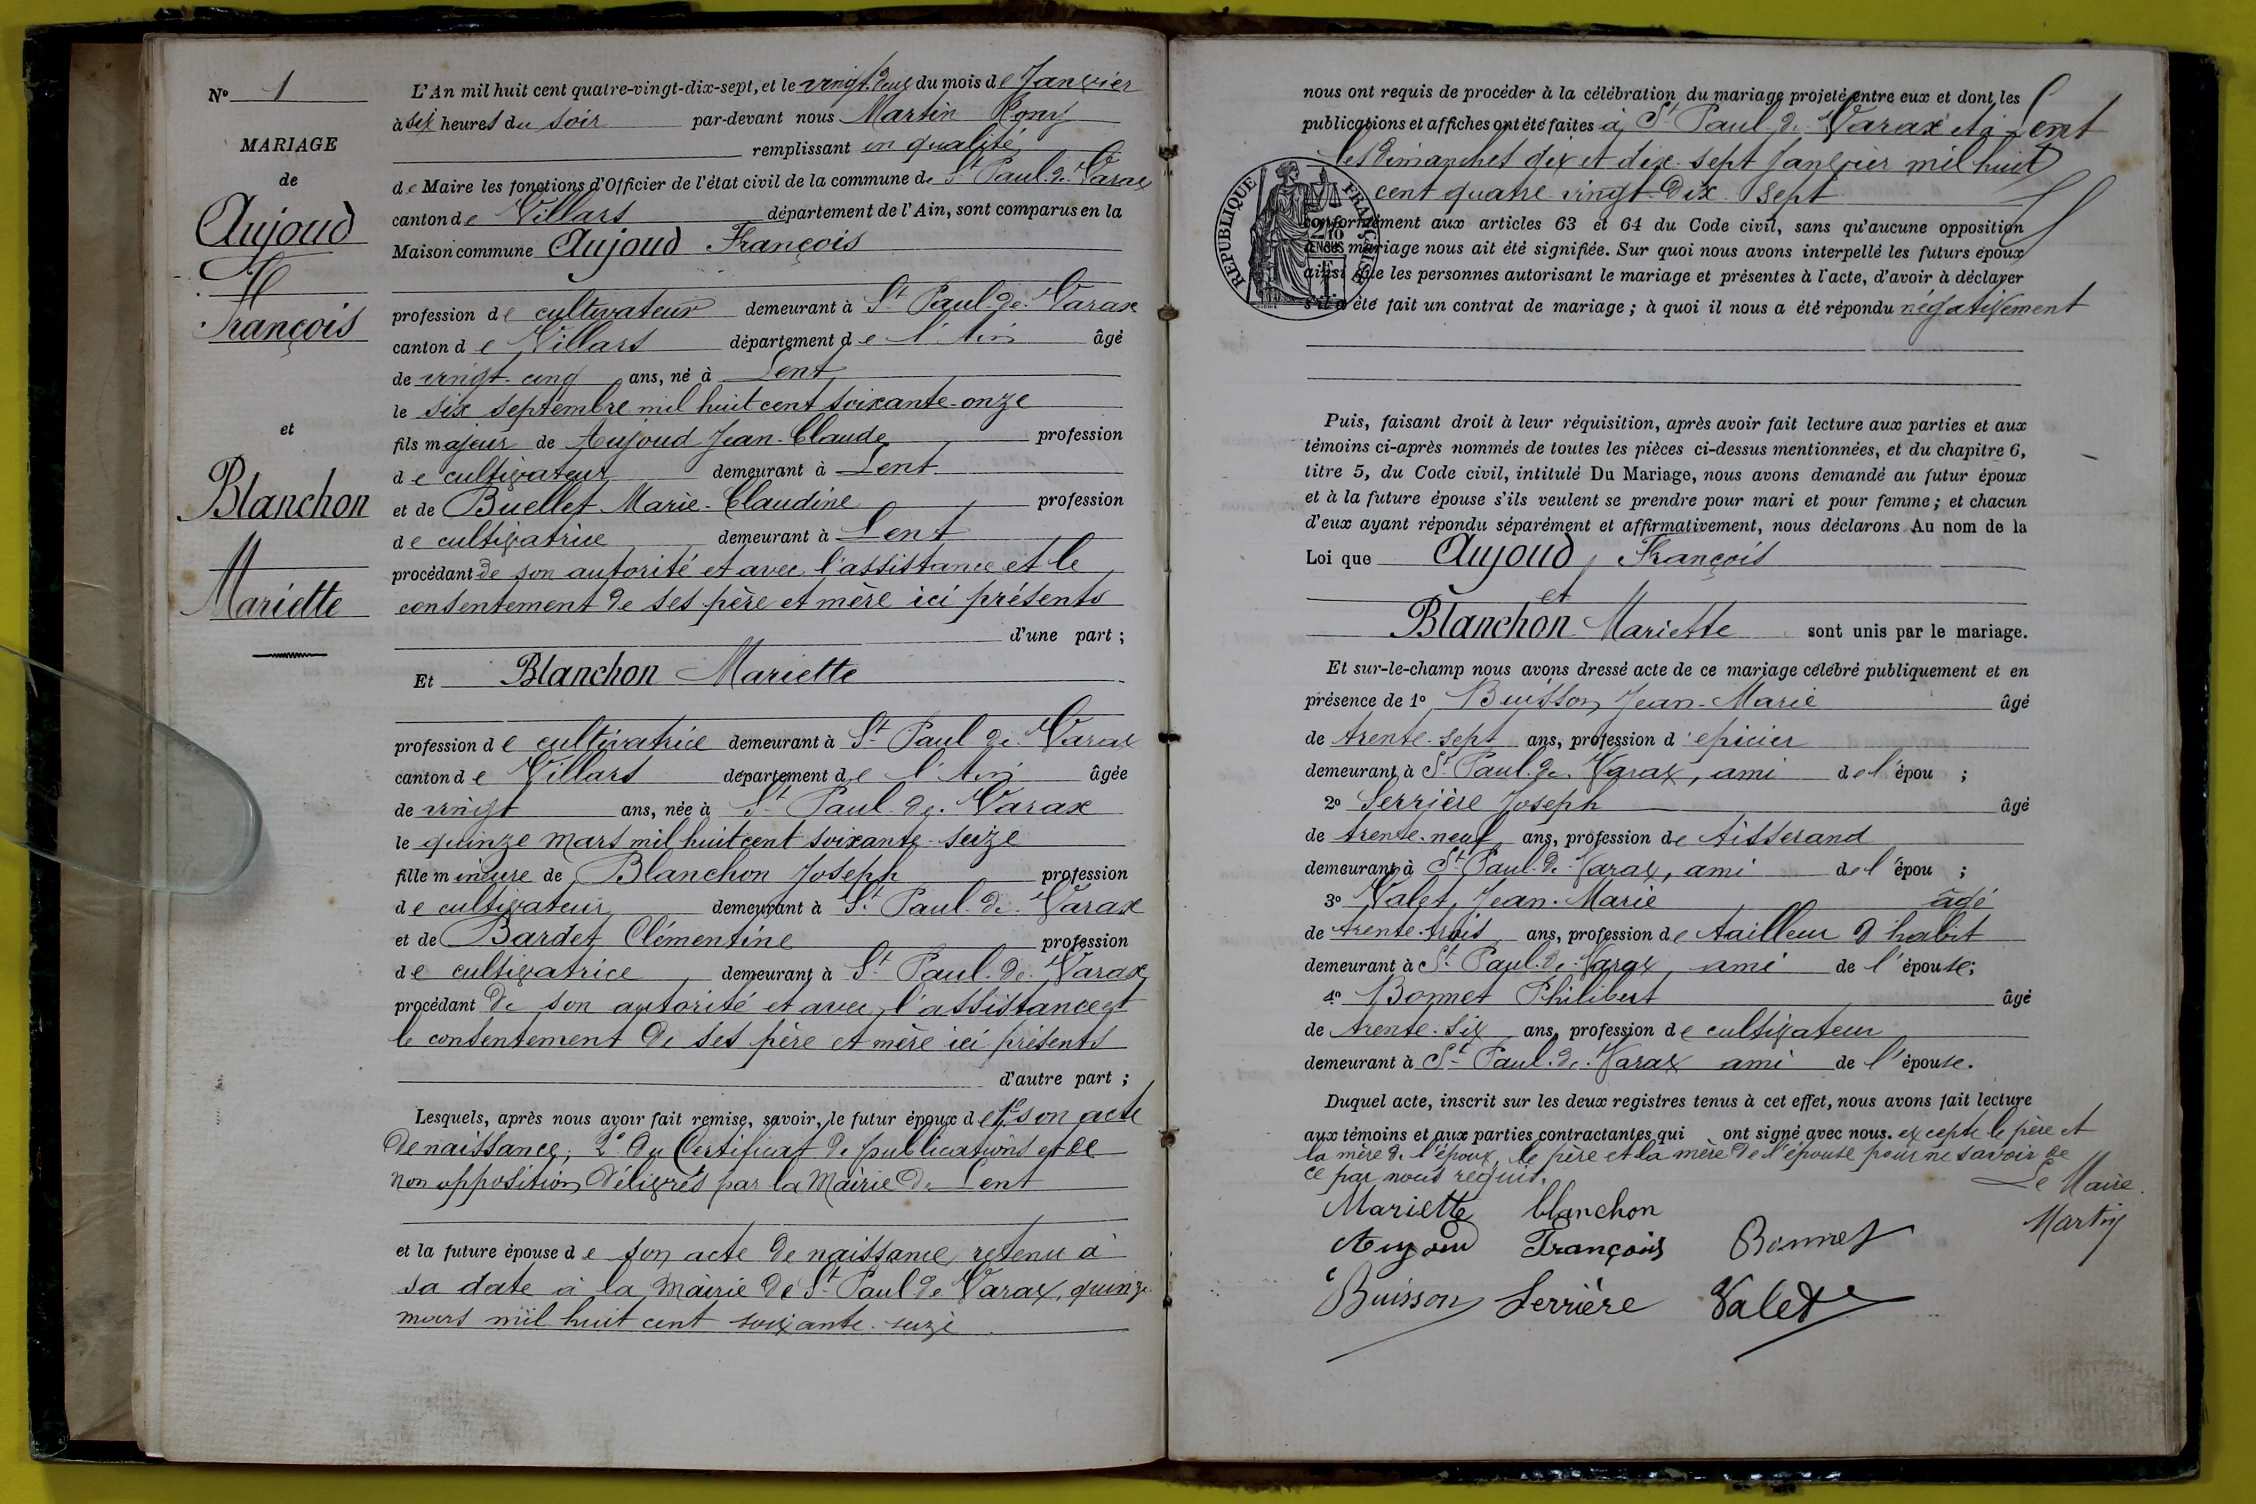 N° 1
MARIAGE
de
Aujoud
François
et
Blanchon
Mariette
L'An mil huit cent quatre-vingt-dix-sept, et le vingt-deux du mois de Janvier
à six heures du soir par-devant nous Martin Rémy
remplissant en qualité
de Maire les fonctions d'Officier de l'état civil de la commune de St Paul-de-Varax
canton de Villars département de l'Ain, sont comparus en la
Maison commune Aujoud François
profession de cultivateur demeurant à St Paul-de-Varax
canton de Villars département de l'Ain âgé
de vingt-cinq ans, né à Lent
le six septembre mil huit cent soixante-onze
fils majeur de Aujoud Jean-Claude profession
de cultivateur demeurant à Lent
et de Buellet Marie-Claudine profession
de cultivatrice demeurant à Lent
procédant de son autorité et avec l'assistance et le
consentement de ses père et mère ici présents
d'une part ;
Et Blanchon Mariette
profession de cultivatrice demeurant à St Paul-de-Varax
canton de Villars département de l'Ain âgée
de vingt ans, née à St Paul-de-Varax
le quinze mars mil huit cent soixante-seize
fille mineure de Blanchon Joseph profession
de cultivateur demeurant à St Paul-de-Varax
et de Bardet Clémentine profession
de cultivatrice demeurant à St Paul-de-Varax
procédant de son autorité et avec l'assistance et
le consentement de ses père et mère ici présents
d'autre part ;
Lesquels, après nous avoir fait remise, savoir, le futur époux de 1° son acte
de naissance, 2° du Certificat de publications et de
non opposition délivrés par la Mairie de Lent
et la future épouse de son acte de naissance retenu à
sa date à la mairie de St Paul de Varax, quinze
mars mil huit cent soixante-seize
nous ont requis de procéder à la célébration du mariage projeté entre eux et dont les
publications et affiches ont été faites à St Paul-de-Varax et à Lent
les dimanches dix et dix-sept Janvier mil huit
cent quatre-vingt-dix-sept
conformément aux articles 63 et 64 du Code civil, sans qu'aucune opposition
mariage nous ait été signifiée. Sur quoi nous avons interpellé les futurs époux
ainsi que les personnes autorisant le mariage et présentes à l'acte, d'avoir à déclarer
s'il a été fait un contrat de mariage ; à quoi il nous a été répondu négativement
RÉPUBLIQUE FRANÇAISE
Puis, faisant droit à leur réquisition, après avoir fait lecture aux parties et aux
témoins ci-après nommés de toutes les pièces ci-dessus mentionnées, et du chapitre 6,
titre 5, du Code civil, intitulé Du Mariage, nous avons demandé au futur époux
et à la future épouse s'ils veulent se prendre pour mari et pour femme ; et chacun
d'eux ayant répondu séparément et affirmativement, nous déclarons Au nom de la
Loi que Aujoud François
et
Blanchon Mariette sont unis par le mariage.
Et sur-le-champ nous avons dressé acte de ce mariage célébré publiquement et en
présence de 1° Buisson Jean-Marie âgé
de trente-sept ans, profession d'épicier
demeurant à St Paul-de-Varax, ami de l'épou ;
2° Serrière Joseph âgé
de trente-neuf ans, profession de tisserand
demeurant à St Paul-de-Varax, ami de l'épou ;
3° Valet Jean-Marie âgé
de trente-trois ans, profession de tailleur d'habit
demeurant à St Paul-de-Varax ami de l'épouse ;
4° Bonnet Philibert âgé
de trente-six ans, profession de cultivateur
demeurant à St Paul-de-Varax ami de l'épouse.
Duquel acte, inscrit sur les deux registres tenus à cet effet, nous avons fait lecture
aux témoins et aux parties contractantes qui ont signé avec nous. excepté le père et
la mère de l'époux, le père et la mère de l'épouse pour ne savoir de
ce par nous requis.
Le Maire.
Mariette blanchon
Martin
Aujoud François Bonnet
Buisson Serrière Valet